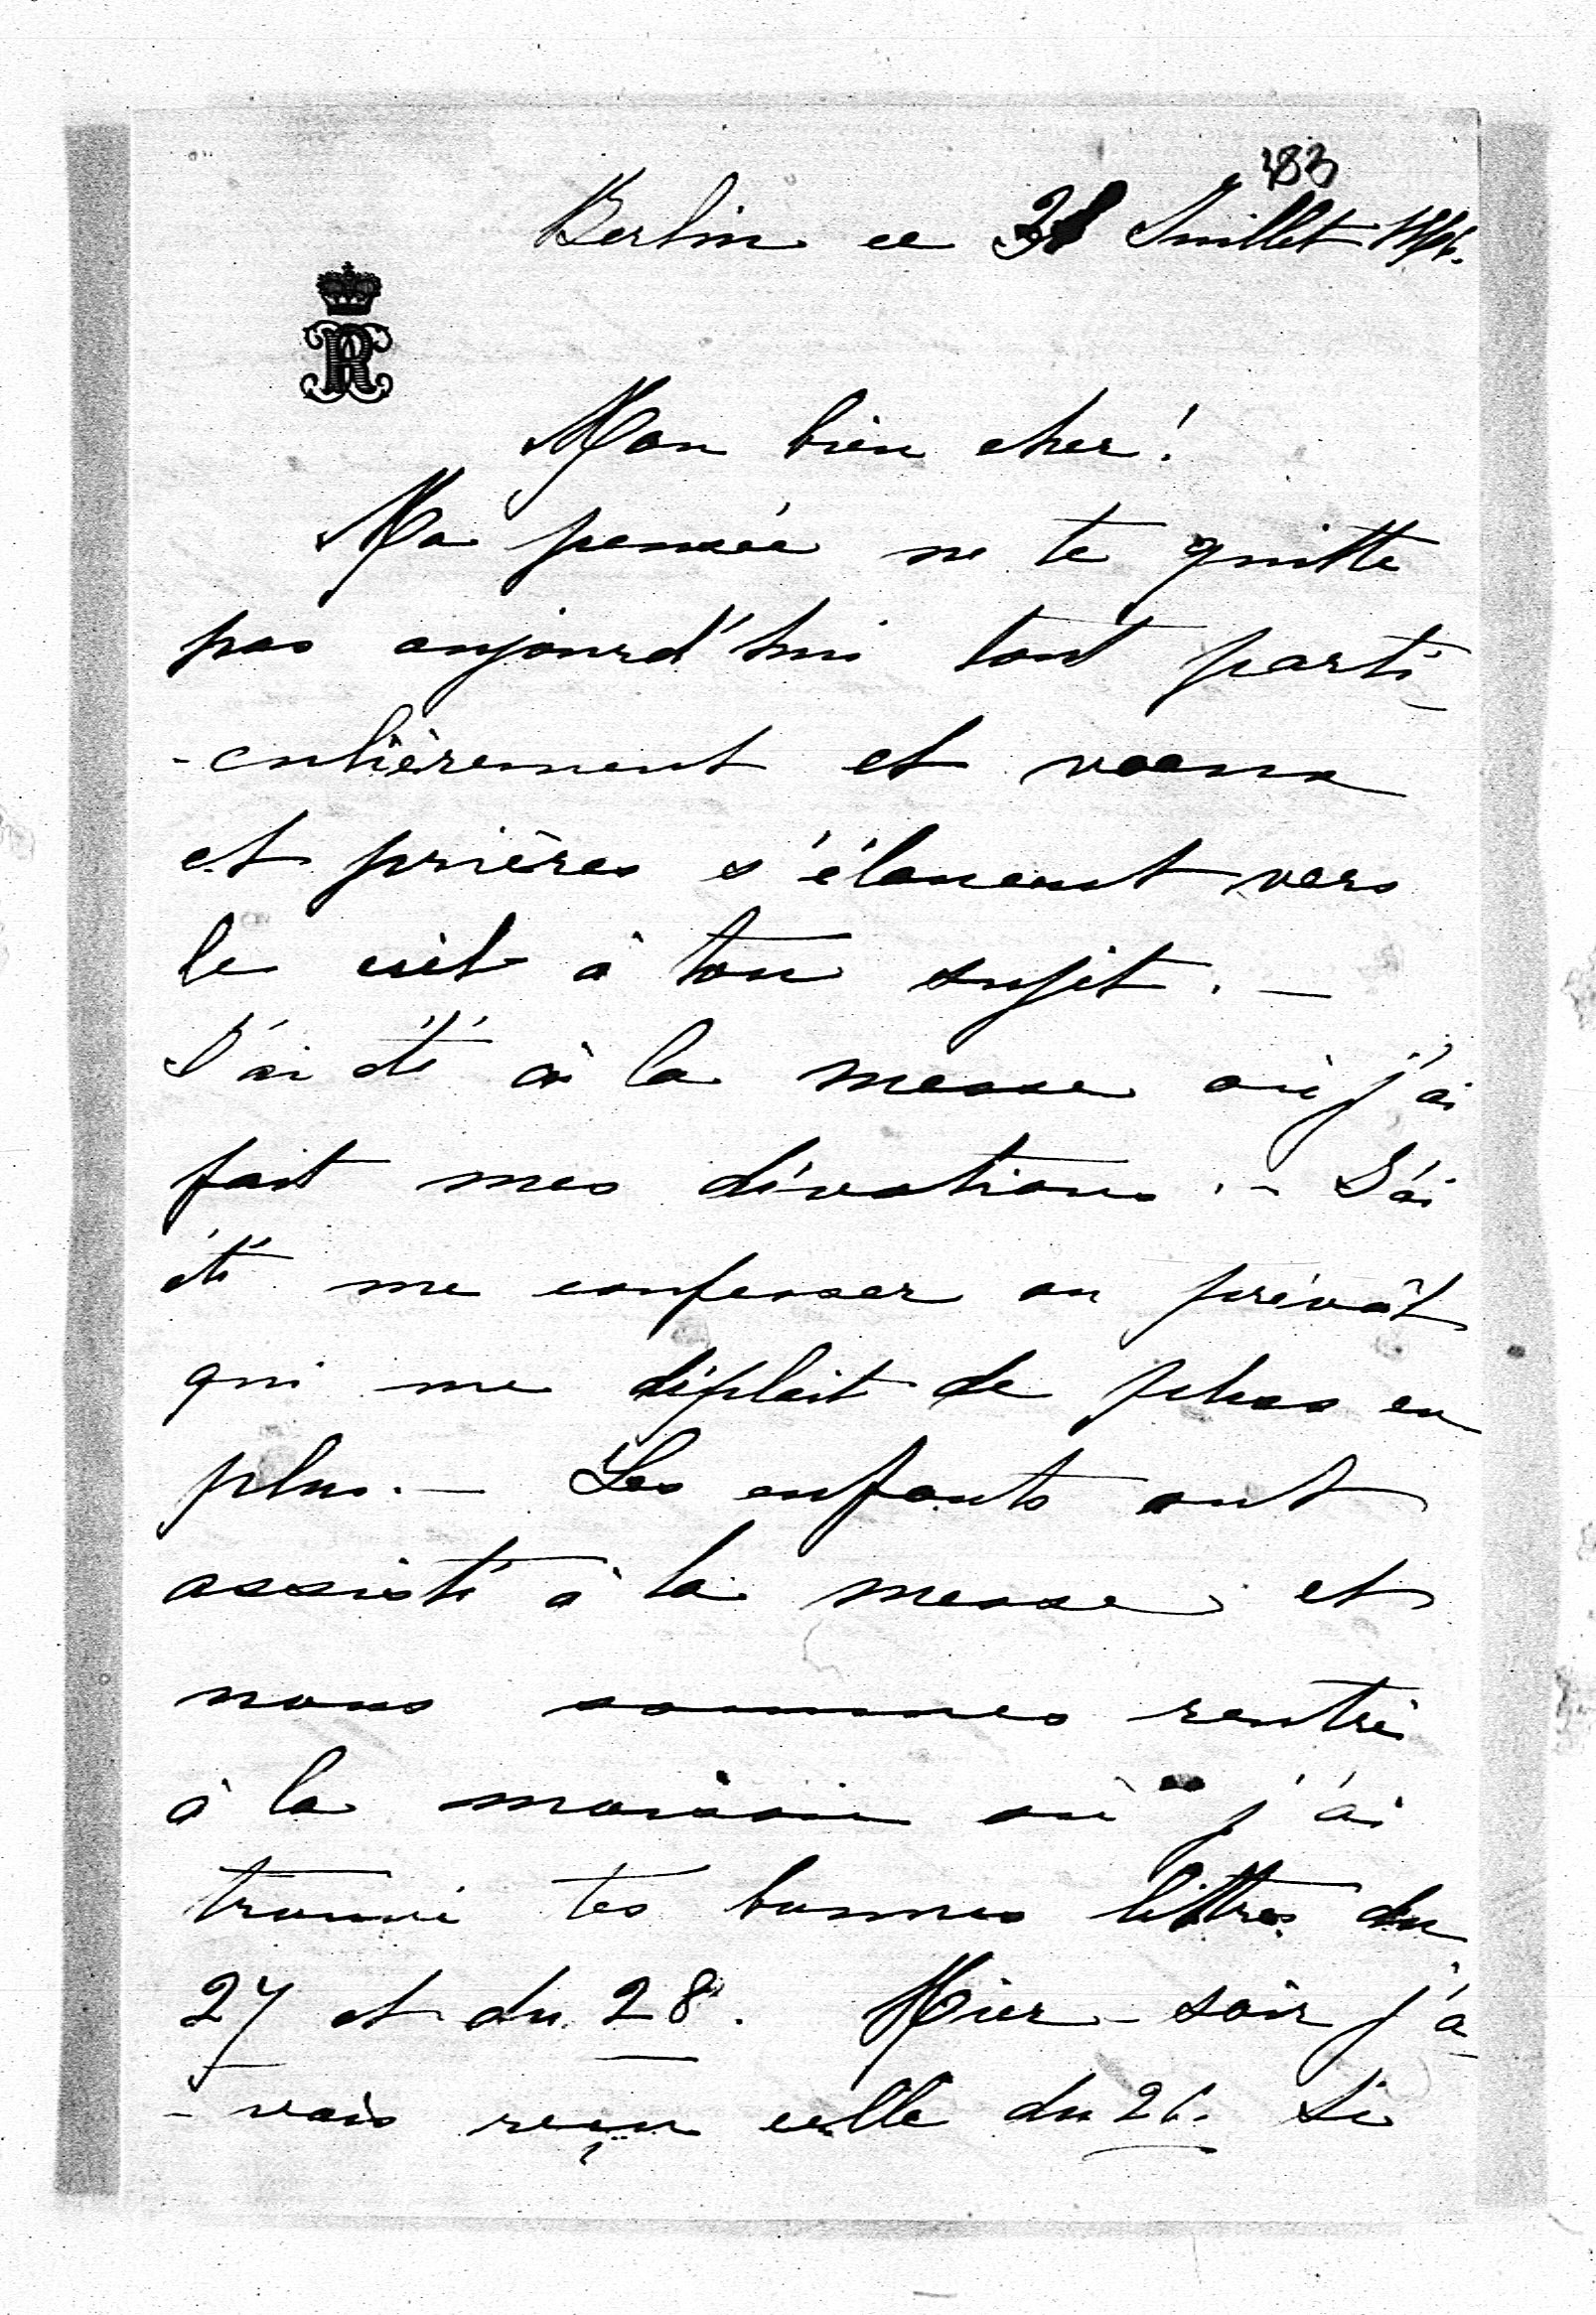 183
Berlin ce 31 Juillet 1866.
Mon bien cher!
Ma pensée ne te quitte
pas aujourd'hui tout parti-
-culièrement et voeux
et prières s'élancent vers
le ciel à ton sujet. —
J'ai été à la messe où j'ai
fait mes dévotions. – J'ai
été me confesser au prévôt
qui me déplait de plus en
plus. — Les enfants ont
assisté à la messe et
nous sommes rentrés
à la maison où j'ai
trouvé tes bonnes lettres du
27 et du 28. Hier-soir j'a-
-vais reçu celle du 26. Si